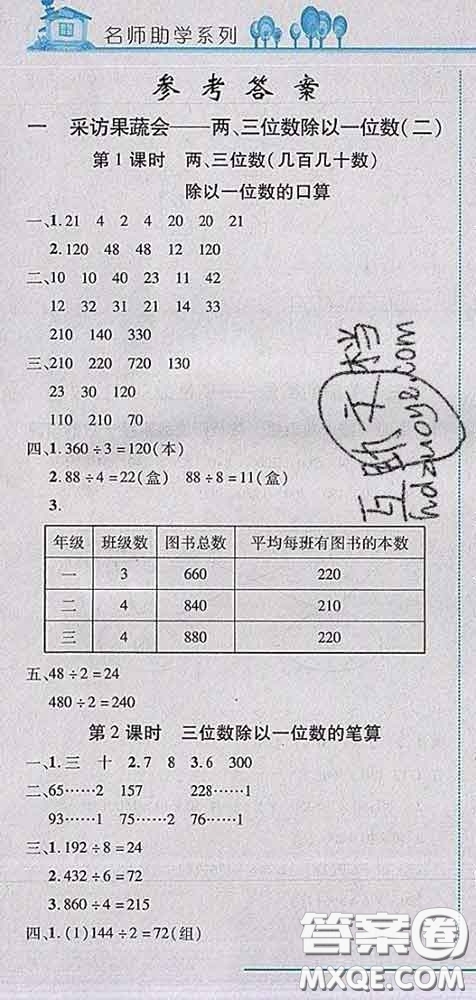 名师助学系列
参考答案
一 采访果蔬会——两、三位数除以一位数(二)
第1课时 两、三位数(几百几十数)
除以一位数的口算
一、1.21 4 2 4 20 20 21
2.120 48 48 12 120
二、10 10 40 23 11 42
12 32 31 21 14 33
210 140 330
三、210 220 720 130
23 30 120
110 210 70
四、1.360÷3=120(本)
2.88÷4=22(盒) 88÷8=11(盒)
3.
年级 班级数 图书总数 平均每班有图书的本数
一 3 660 220
二 4 840 210
三 4 880 220
五、48÷2=24
480÷2=240
第2课时 三位数除以一位数的笔算
一、1.三 十 2.7 8 3.6 300
二、65……2 157 228……1
93……1 75……2 76……1
三、1.192÷8=24
2.432÷6=72
3.860÷4=215
四、1.(1)144÷2=72(组)
答案圈
MXQE.COM